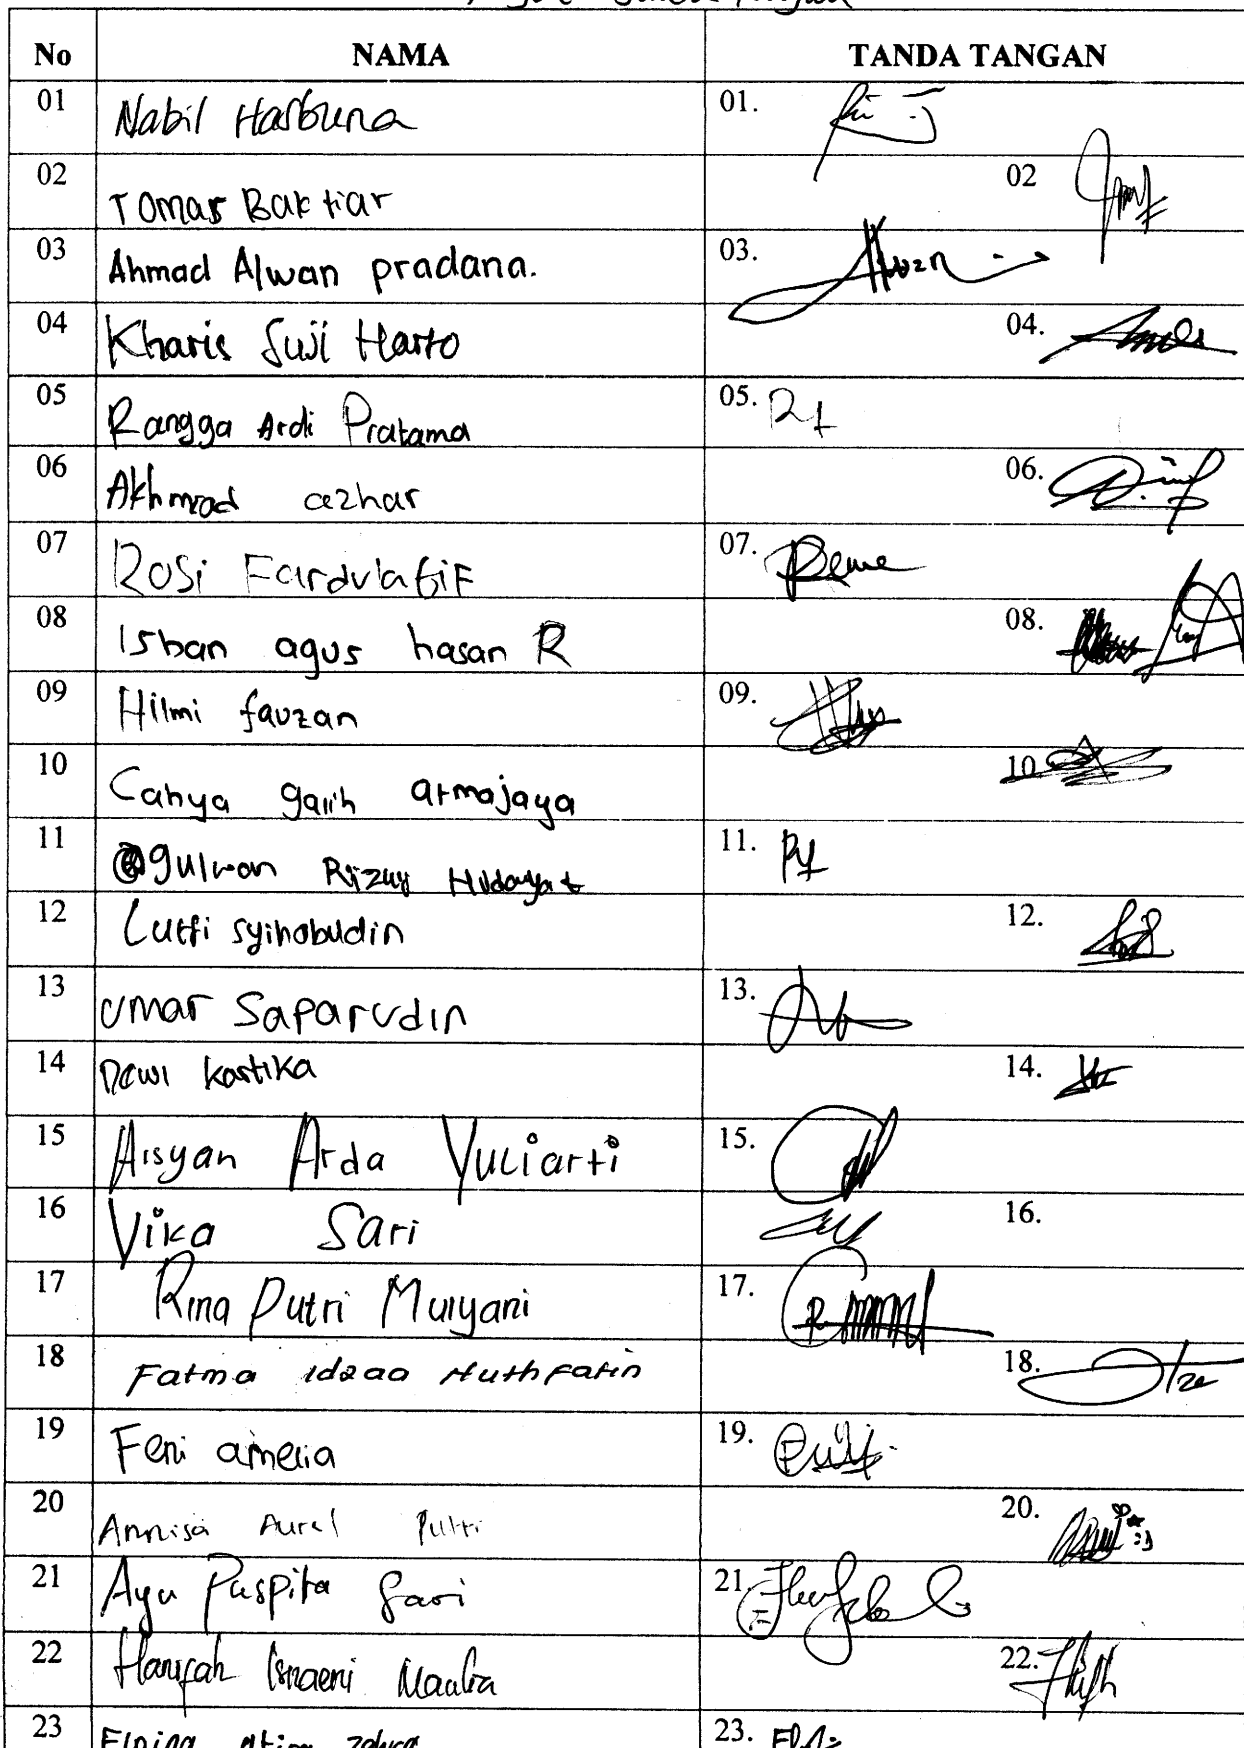 No NAMA TANDA TANGAN
01 Nabil Hasbuna 01.
02 Tomas Baktiar 02
03 Ahmad Alwan pradana. 03.
04 Kharis Suji Harto 04.
05 Rangga Ardi Pratama 05.
06 Akhmad azhar 06.
07 Rosi Fardulafif 07.
08 Isban agus hasan R 08.
09 Hilmi fauzan 09.
10 Cahya galih armajaya 10
11 Rizqy Hidayat 11.
12 Lutfi syihabudin 12.
13 Umar Saparudin 13.
14 Dewi kartika 14.
15 Aisyah Arda Yuliarti 15.
16 Vika Sari 16.
17 Rina Putri Muryani 17.
18 Fatma Idzaa Huthfatin 18.
19 Feni amelia 19.
20 Annisa Aurel Putri 20.
21 Ayu Puspita Sari 21.
22 Hanifah Isnaeni Maulia 22.
23 23.